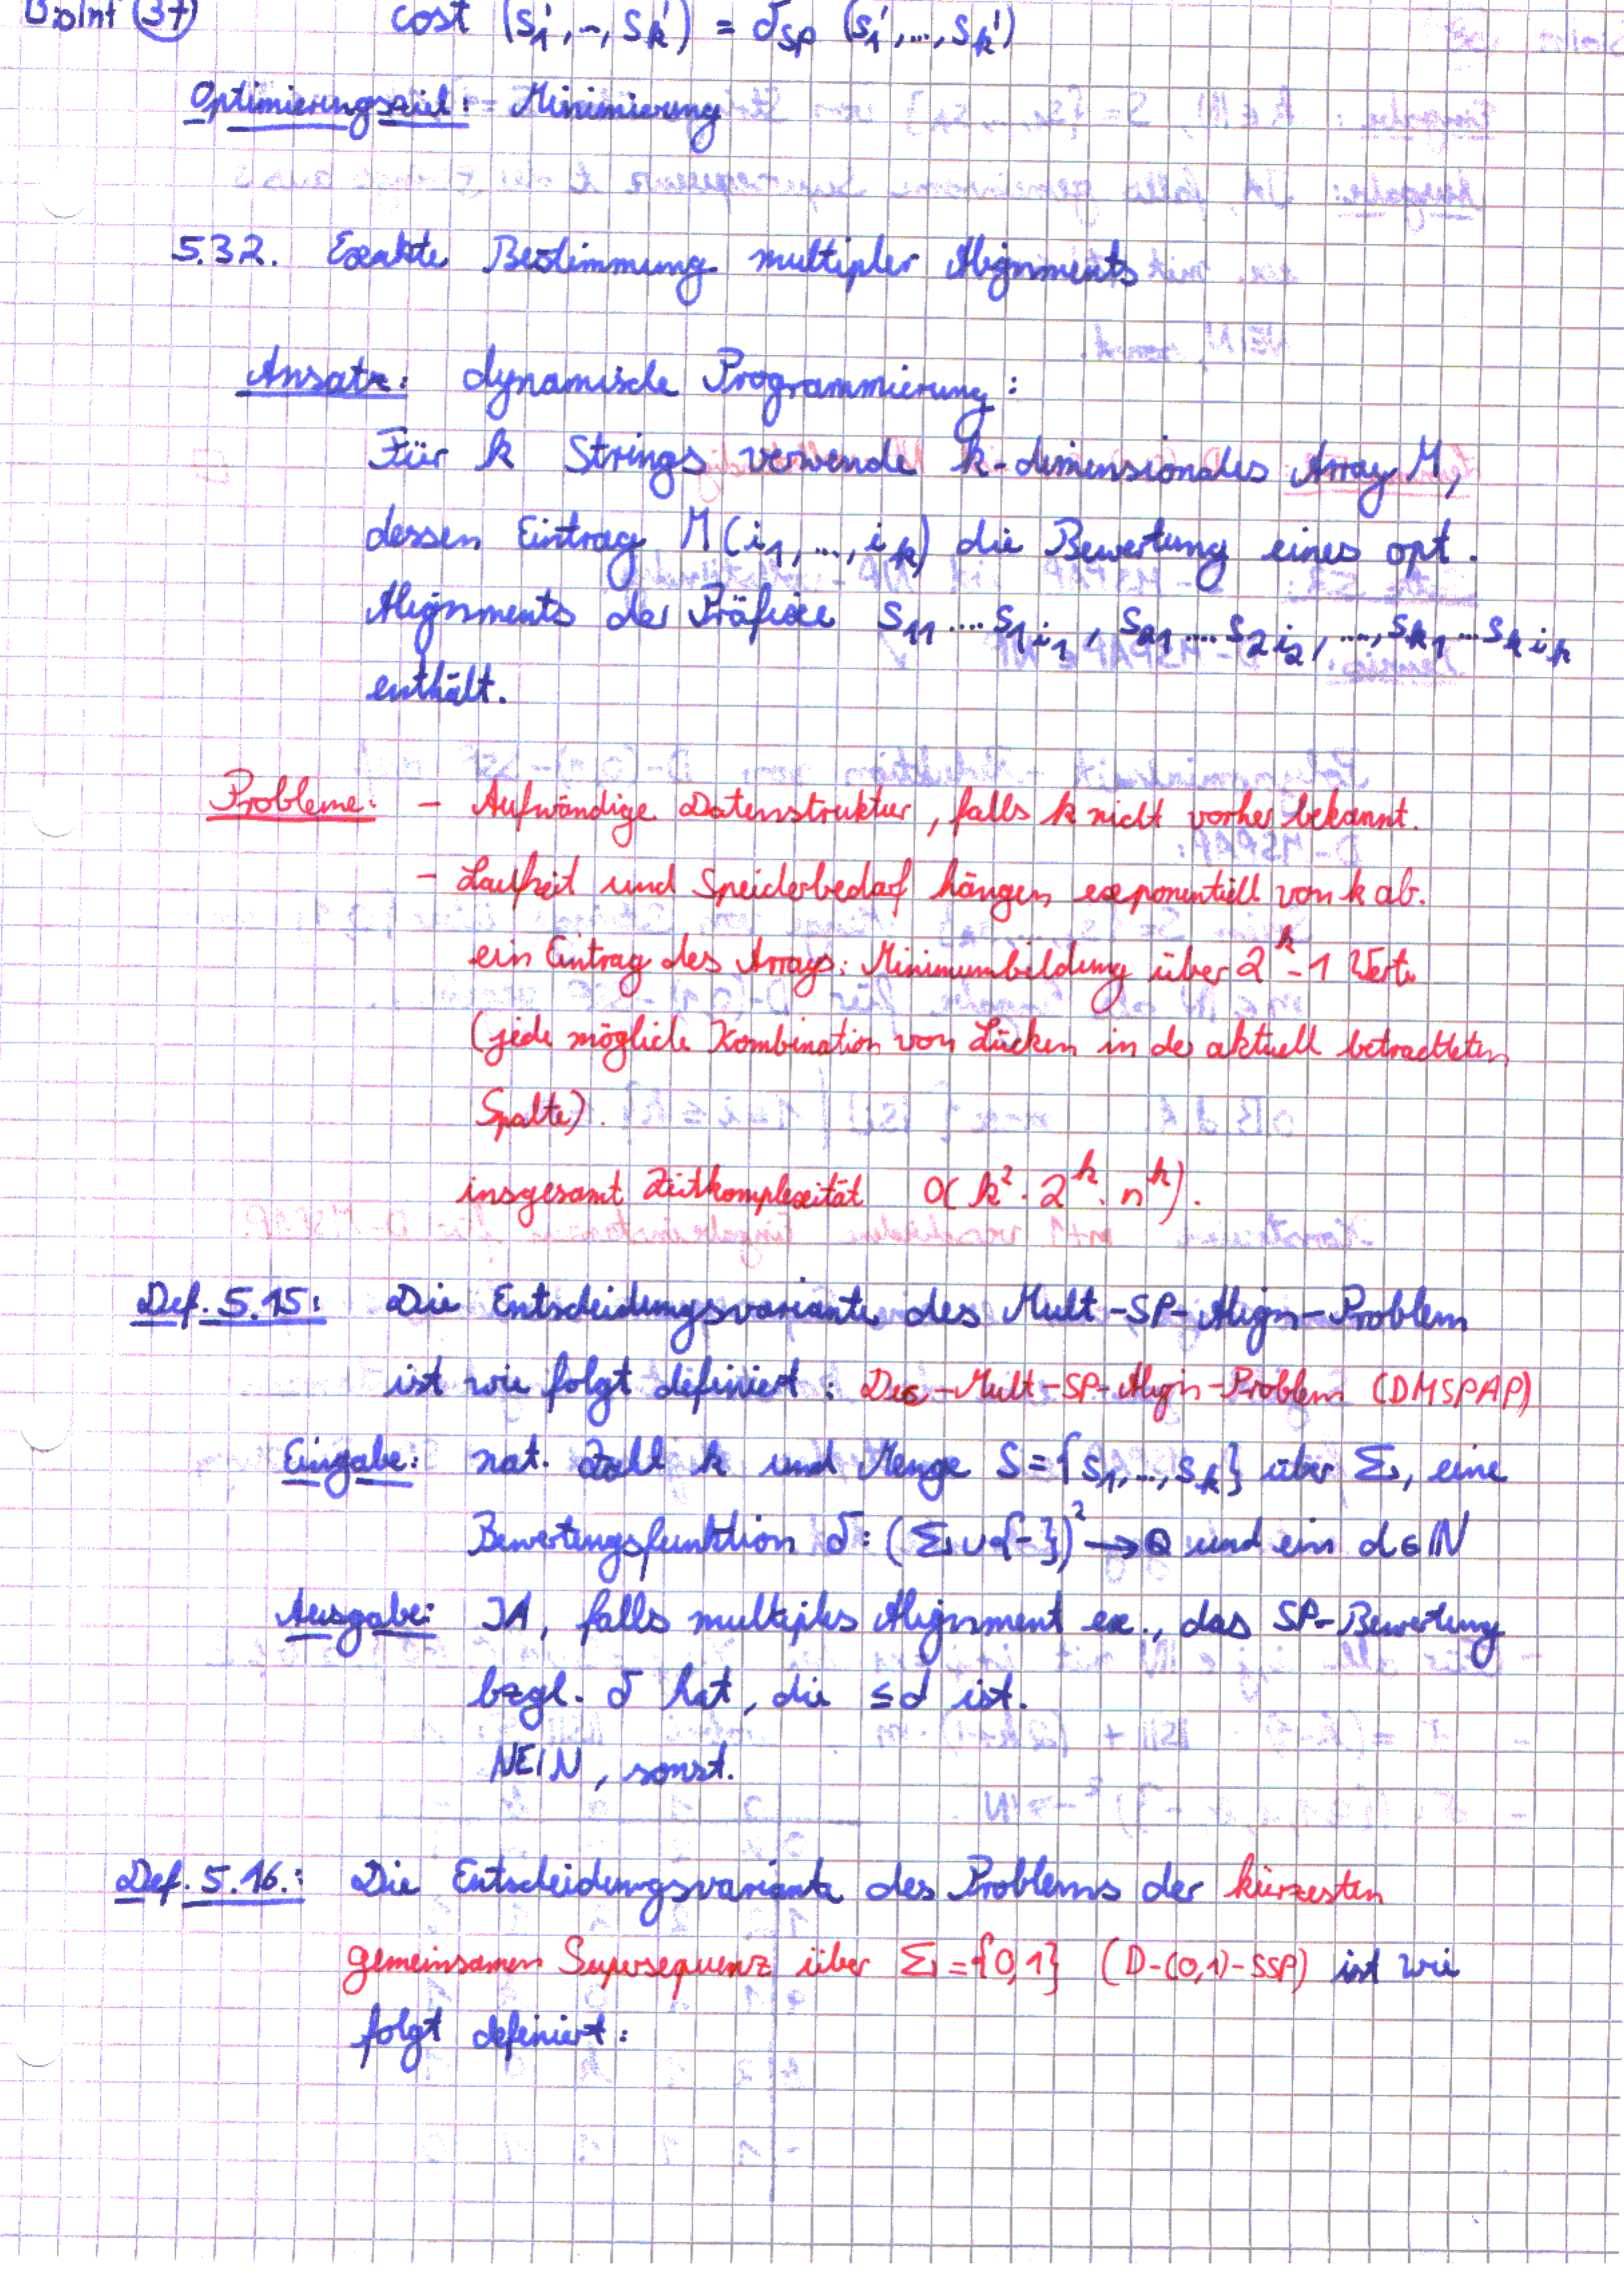 BioInf (37) cost (s₁', ..., sₖ') = δ_SP (s₁', ..., sₖ')
Optimierungsziel: Minimierung
5.3.2. Exakte Bestimmung multipler Alignments
Ansatz: dynamische Programmierung:
Für k Strings verwende k-dimensionales Array M,
dessen Eintrag M(i₁, ..., iₖ) die Bewertung eines opt.
Alignments der Präfixe s₁₁....s₁ᵢ₁, s₂₁....s₂ᵢ₂, ...., sₖ₁...sₖᵢₖ
enthält.
Probleme: - Aufwändige Datenstruktur, falls k nicht vorher bekannt.
- Laufzeit und Speicherbedarf hängen exponentiell von k ab.
ein Eintrag des Arrays: Minimumbildung über 2ᵏ-1 Werte
(jede mögliche Kombination von Lücken in der aktuell betrachteten
Spalte).
insgesamt Zeitkomplexität O(k²·2ᵏ·nᵏ).
Def. 5.15: Die Entscheidungsvariante des Mult-SP-Align-Problem
ist wie folgt definiert: Dec-Mult-SP-Align-Problem (DMSPAP)
Eingabe: nat. Zahl k und Menge S={s₁,...,sₖ} über Σ, eine
Bewertungsfunktion δ: (Σ∪{-})² → ℚ und ein d∈ℕ
Ausgabe: JA, falls multiples Alignment ex., das SP-Bewertung
bzgl. δ hat, die ≤d ist.
NEIN, sonst.
Def. 5.16.: Die Entscheidungsvariante des Problems der kürzesten
gemeinsamen Supersequenz über Σ={0,1} (D-(0,1)-SSP) ist wie
folgt definiert: